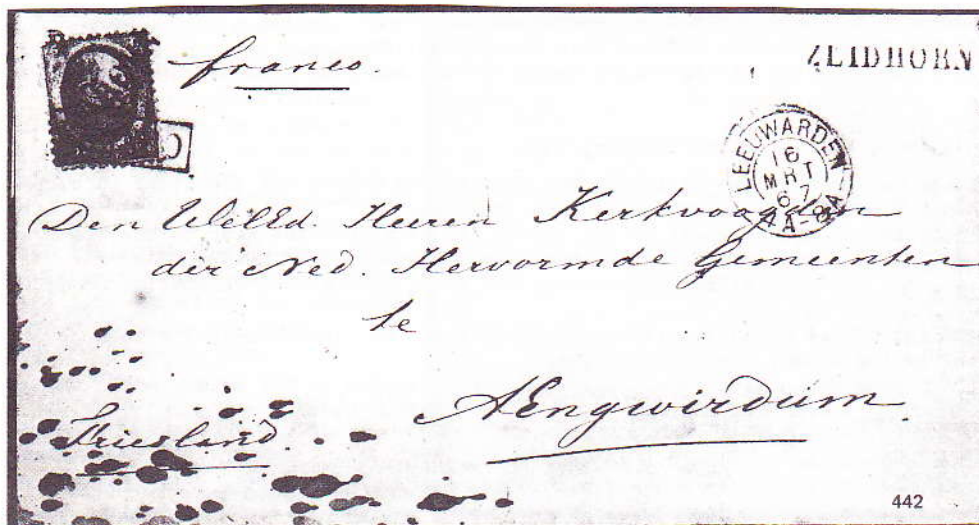 franco.
ZUIDHORN
LEEUWARDEN
16
MRT
67
4A-8A
Den WelEd. Heeren Kerkvoogden
der Ned. Hervormde Gemeenten
te
AEngwirdum.
Friesland
442